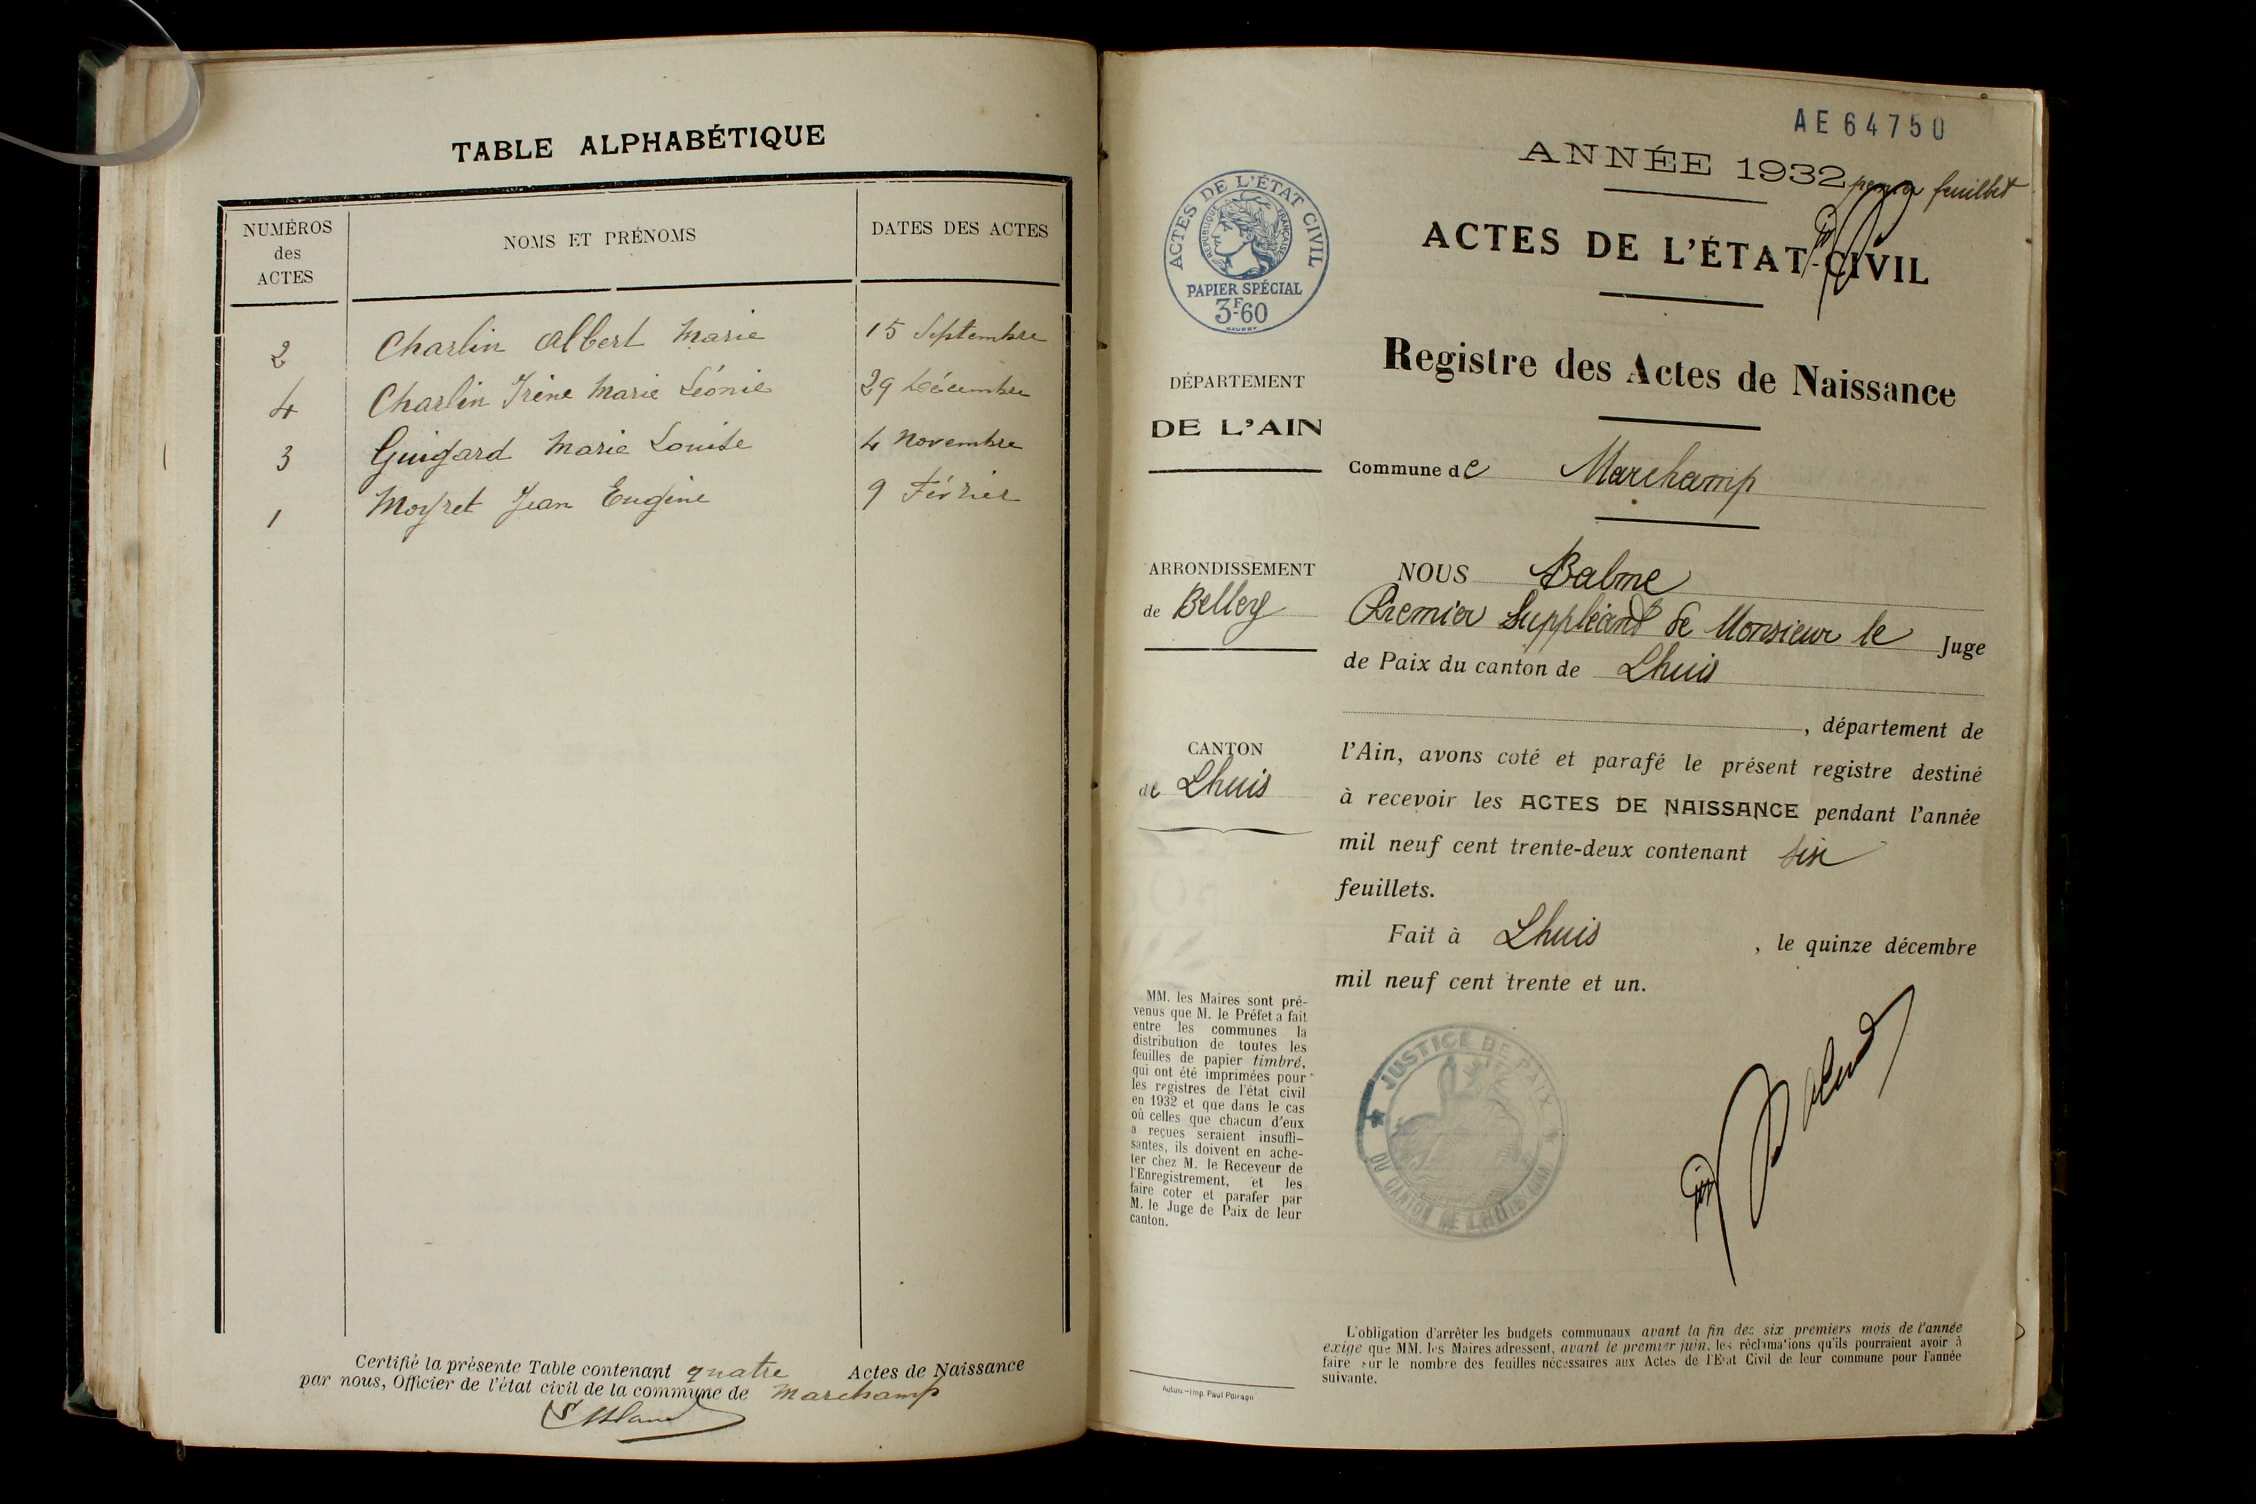 TABLE ALPHABÉTIQUE
NUMÉROS
des
ACTES
NOMS ET PRÉNOMS
DATES DES ACTES
2 Charlin Albert Marie 15 Septembre
4 Charlin Irène Marie Léonie 29 Décembre
3 Guigard Marie Louise 4 Novembre
1 Moyret Jean Eugène 9 Février
Certifié la présente Table contenant quatre Actes de Naissance
par nous, Officier de l'état civil de la commune de Marchamp
AE 64750
ANNÉE 1932
feuillet
ACTES DE L'ÉTAT-CIVIL
Registre des Actes de Naissance
Commune de Marchamp
ACTES DE L'ÉTAT CIVIL
RÉPUBLIQUE FRANÇAISE
PAPIER SPÉCIAL
3F.60
DÉPARTEMENT
DE L'AIN
ARRONDISSEMENT
de Belley
CANTON
de Lhuis
NOUS Balme
Premier Suppléant de Monsieur le Juge
de Paix du canton de Lhuis
, département de
l'Ain, avons coté et parafé le présent registre destiné
à recevoir les ACTES DE NAISSANCE pendant l'année
mil neuf cent trente-deux contenant six
feuillets.
Fait à Lhuis , le quinze décembre
mil neuf cent trente et un.
MM. les Maires sont pré-
venus que M. le Préfet a fait
entre les communes la
distribution de toutes les
feuilles de papier timbré,
qui ont été imprimées pour
les registres de l'état civil
en 1932 et que dans le cas
où celles que chacun d'eux
a reçues seraient insuffi-
santes, ils doivent en ache-
ter chez M. le Receveur de
l'Enregistrement, et les
faire coter et parafer par
M. le Juge de Paix de leur
canton.
JUSTICE DE PAIX
DU CANTON DE LHUIS (AIN)
L'obligation d'arrêter les budgets communaux avant la fin des six premiers mois de l'année
exige que MM. les Maires adressent, avant le premier juin, les réclamations qu'ils pourraient avoir à
faire sur le nombre des feuilles nécessaires aux Actes de l'Etat Civil de leur commune pour l'année
suivante.
Autun - Imp. Paul Poirson